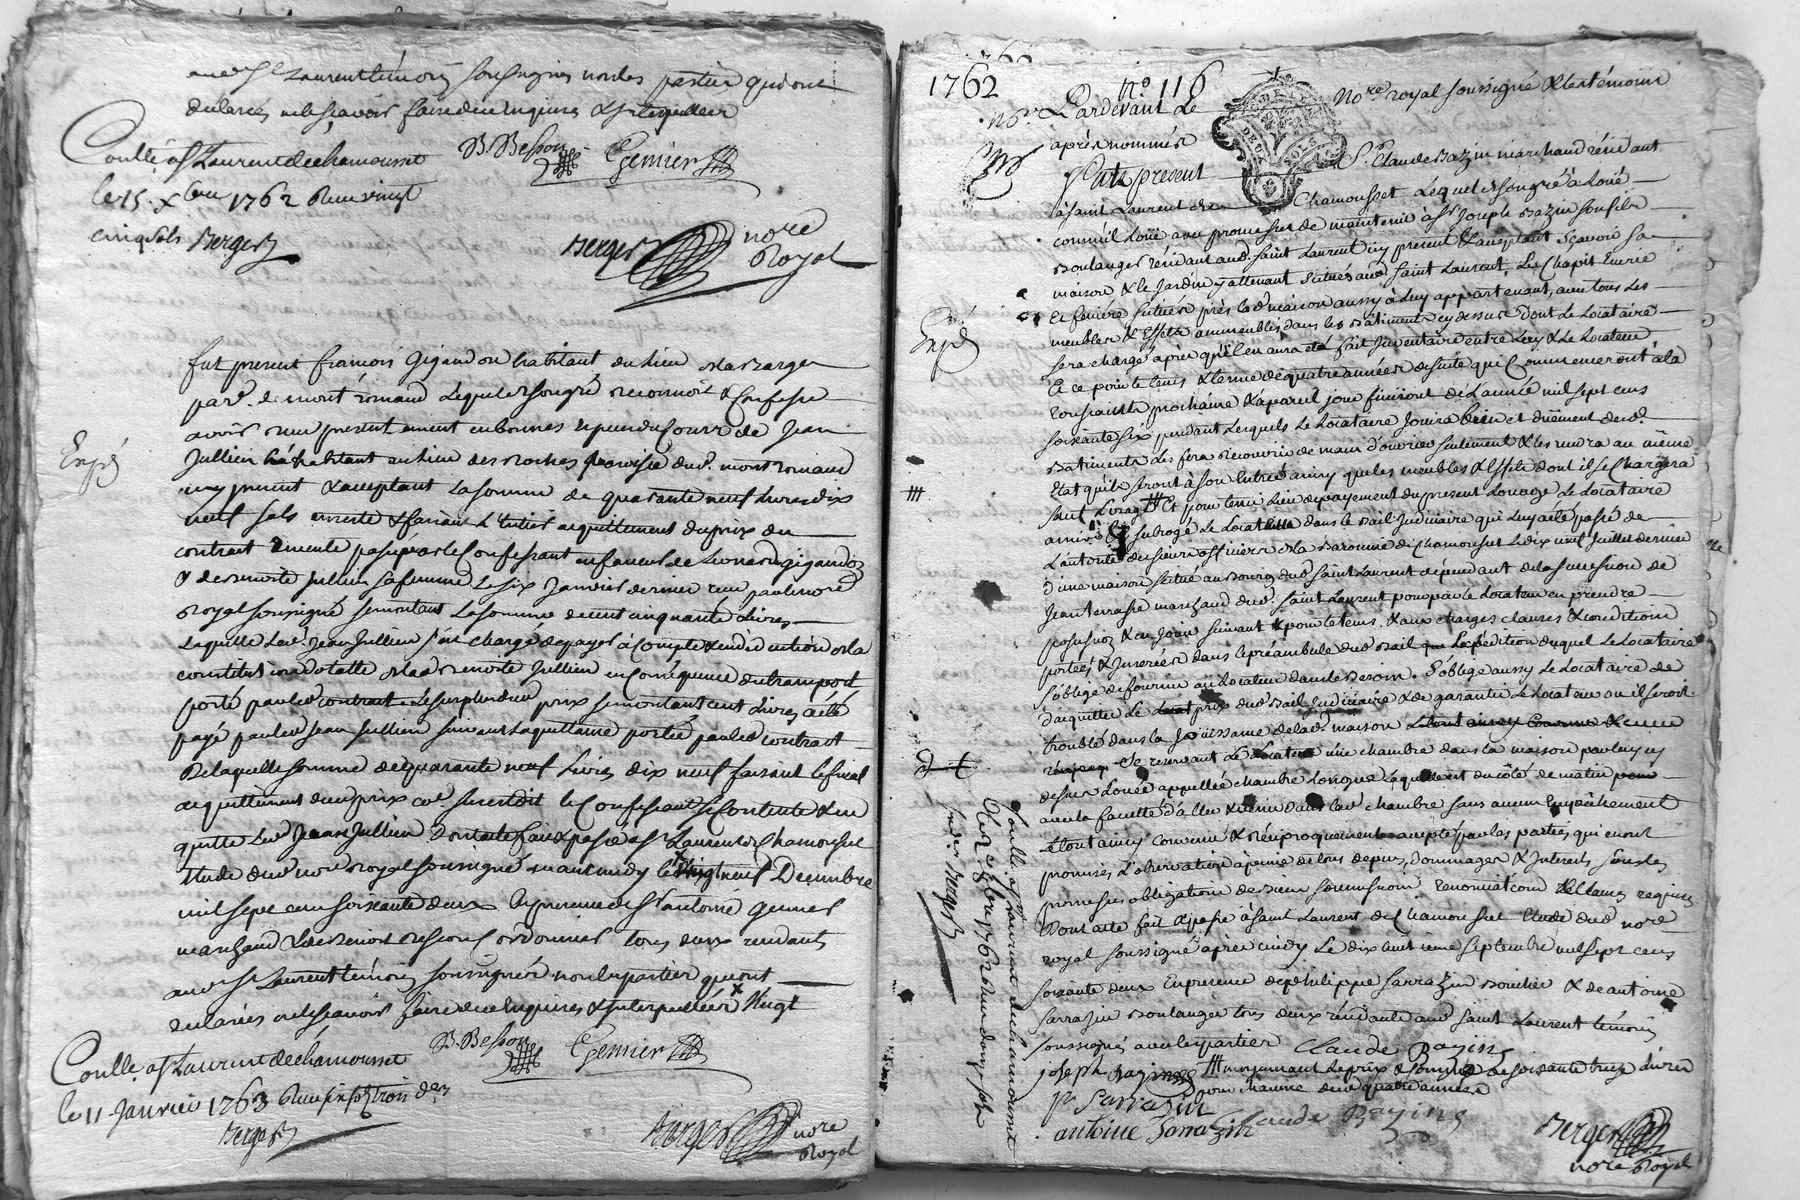 aud. St Laurent témoin soussignés non les parties qui ont
declarés ne le sçavoir faire de ce enquises & interpellées
B. Besson Gemier
Conllé à St Laurent de chamousset
le 15 xbre 1762 Reçu vingt
cinq sols Berger
Berger nore Royal
fut present francois Gigandon habitant du lieu
parr. de montromand Lequel de son gré reconnoit & confesse
avoir reçu presentement en bonnes especes du cours de Jean
Jullien habitant au lieu des Roches parroisse dud. montromand
icy present & acceptant La somme de quarante neuf livres dix
neuf sols en reste & faisant L'entier acquittement du prix du
contract de vente passé par le Confessant en faveur de
Jullien sa femme le six Janvier dernier reçu par le nore
Royal soussigné se montant La somme de cent cinquante livres
Laquelle Led. Jean Jullien s'est chargé de payer à compte
constitution dotalle Jullien en conséquence du transport
porté par led. contract & le surplus dud. prix se montant cent Livres a été
payé par led. Jean Jullien suivant la quittance portée par led. contract
De laquelle somme de quarante neuf Livres dix neuf faisant le final
acquittement dud. prix le Confessant se Contente & en
quitte led. Jean Jullien Dont acte fait & passé à St Laurent de Chamousset
Etude dud. nore royal soussigné avant midy le vingt neuf Decembre
mil sept cens soixante deux En presence de St antoine Gemier
marchand & de Benoit Besson cordonnier tous deux residants
aud. St Laurent témoins soussignés non les parties qui ont
declarés ne le sçavoir faire de ce enquises & interpellées x Vingt
B. Besson Gemier
Conllé à St Laurent de chamousset
le 11 Janvier 1763 Reçu
Berger
Berger nore Royal
Expé
1762 n° 116
Pardevant Le Nore royal soussigné & les témoins
après nommés
DEUX SOLS
fut present Sr. Claude Bazin marchand résidant
à Saint Laurent de Chamousset Lequel de son gré à Loüé
comme il Loüe avec promesses de maintenir à Sr Joseph Bazin son fils
Boulanger résidant aud. Saint Laurent icy present & acceptant Sçavoir sa
maison & le Jardin y attenant situés aud. Saint Laurent, Le Chapit Ecurie
Et feniere située près lad. maison aussy à Luy appartenant, avec tous Les
meubles & Effets ameublés dans les Batiments cy dessus dont Le Locataire
sera chargé après qu'il en aura été fait Inventaire entre Luy & Le Locateur
Et ce pour le tems & terme de quatre années de suite qui Commenceront à la
Toussaints prochaine & a pareil jour finiront de L'année mil sept cens
soixante six pendant lesquels Le Locataire Jouira bien et duëment desd.
Batiments Les fera recouvrir de main d'ouvrier seulement & les rendra au même
Etat qu'ils seront à son Entrée ainsy que les meubles & Effets dont il se Chargera
sauf L'usage Et pour tenir Lieu de payement du present Louage Le Locataire
subrogé Le Locateur dans le Bail Judiciaire qui Luy a été passé de
L'autorité des sieurs officiers de la Baronnie de Chamousset Le dix neuf Juillet dernier
d'une maison située au Bourg dud. Saint Laurent dépendant de la succession de
Jean terrasse marchand dud. Saint Laurent pour par le Locateur en prendre
possession & en Jouir suivant & pour le tems & aux charges clauses & conditions
portées & Inserées dans le préambule dud. Bail Expédition duquel Le Locataire
s'oblige de fournir au Locateur dans le Besoin. S'oblige aussy Le Locataire de
d'acquitter Le prix dud. Bail Judiciaire & de garantir Le Locateur ou il seroit
troublé dans la Joüissance de lad. maison
Se reservant Le Locateur une chambre dans la maison par luy cy
dessus Loüée appellée chambre Longue Laquelle est du côté de matin
avec la faculté d'aller & venir dans lad. chambre sans aucun Empêchement
Le tout ainsy convenu & réciproquement accepté par les parties qui en ont
promises L'observation à peine de tous depens, dommages & Interets sous les
promesses obligation de Biens soumissions renonciations & clauses requises
Dont acte fait & passé à Saint Laurent de Chamousset Etude dud. nore
royal soussigné après midy Le dix huitieme septembre mil sept cens
soixante deux En presence de philippe Sarrazin Boucher & de antoine
Sarrazin Boulanger tous deux résidants aud. Saint Laurent témoins
soussignés avec les parties Claude Bazin
joseph Bazin moyennant Le prix & somme de soixante treize Livres
pour chacune desd. quatre années
p. Sarrazin
antoine Sarrazin Claude Bazin
Berger
nore Royal
Expé
Conllé à St Laurent de chamousset
le 29 7bre 1762 Reçu douze sols
Berger